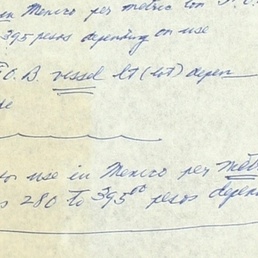 in Mexico per metric ton F.O.
395 pesos depending on use
F.O.B. vessel lt (lot) depen
de
for use in Mexico per met
280 to 395⁰⁰ pesos depend